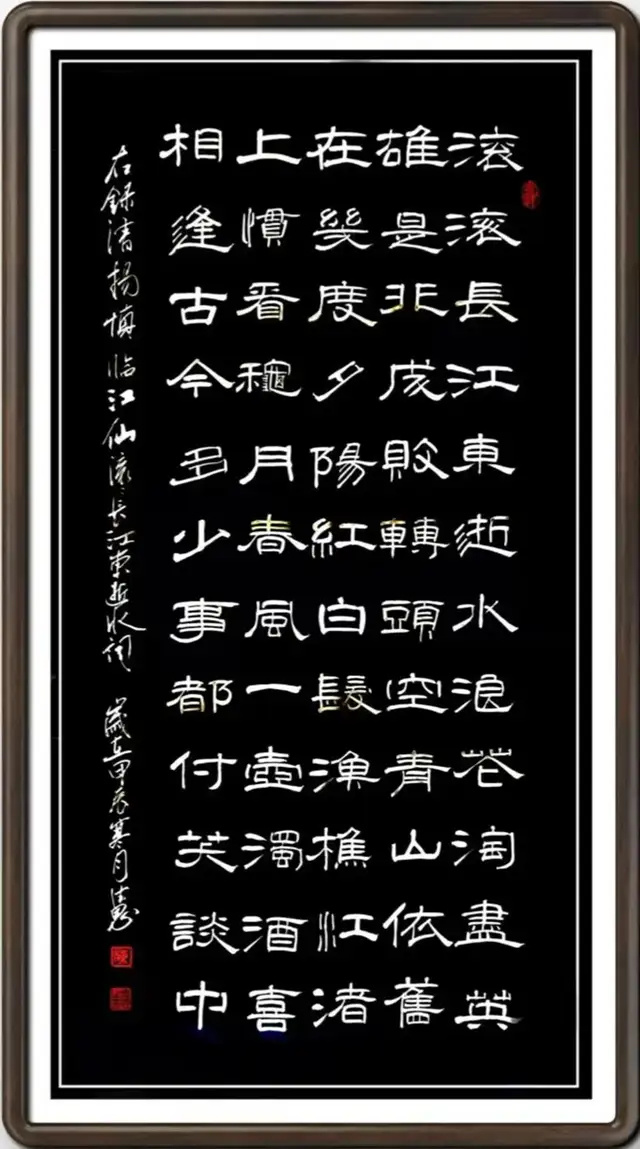 滚滚長江東逝水浪花淘盡英
雄是非成敗轉頭空青山依舊
在幾度夕陽紅白髮漁樵江渚
上慣看穐月春風一壺濁酒喜
相逢古今多少事都付笑談中
右録清杨慎临江仙滚长江東逝水詞 歲在甲辰寒月